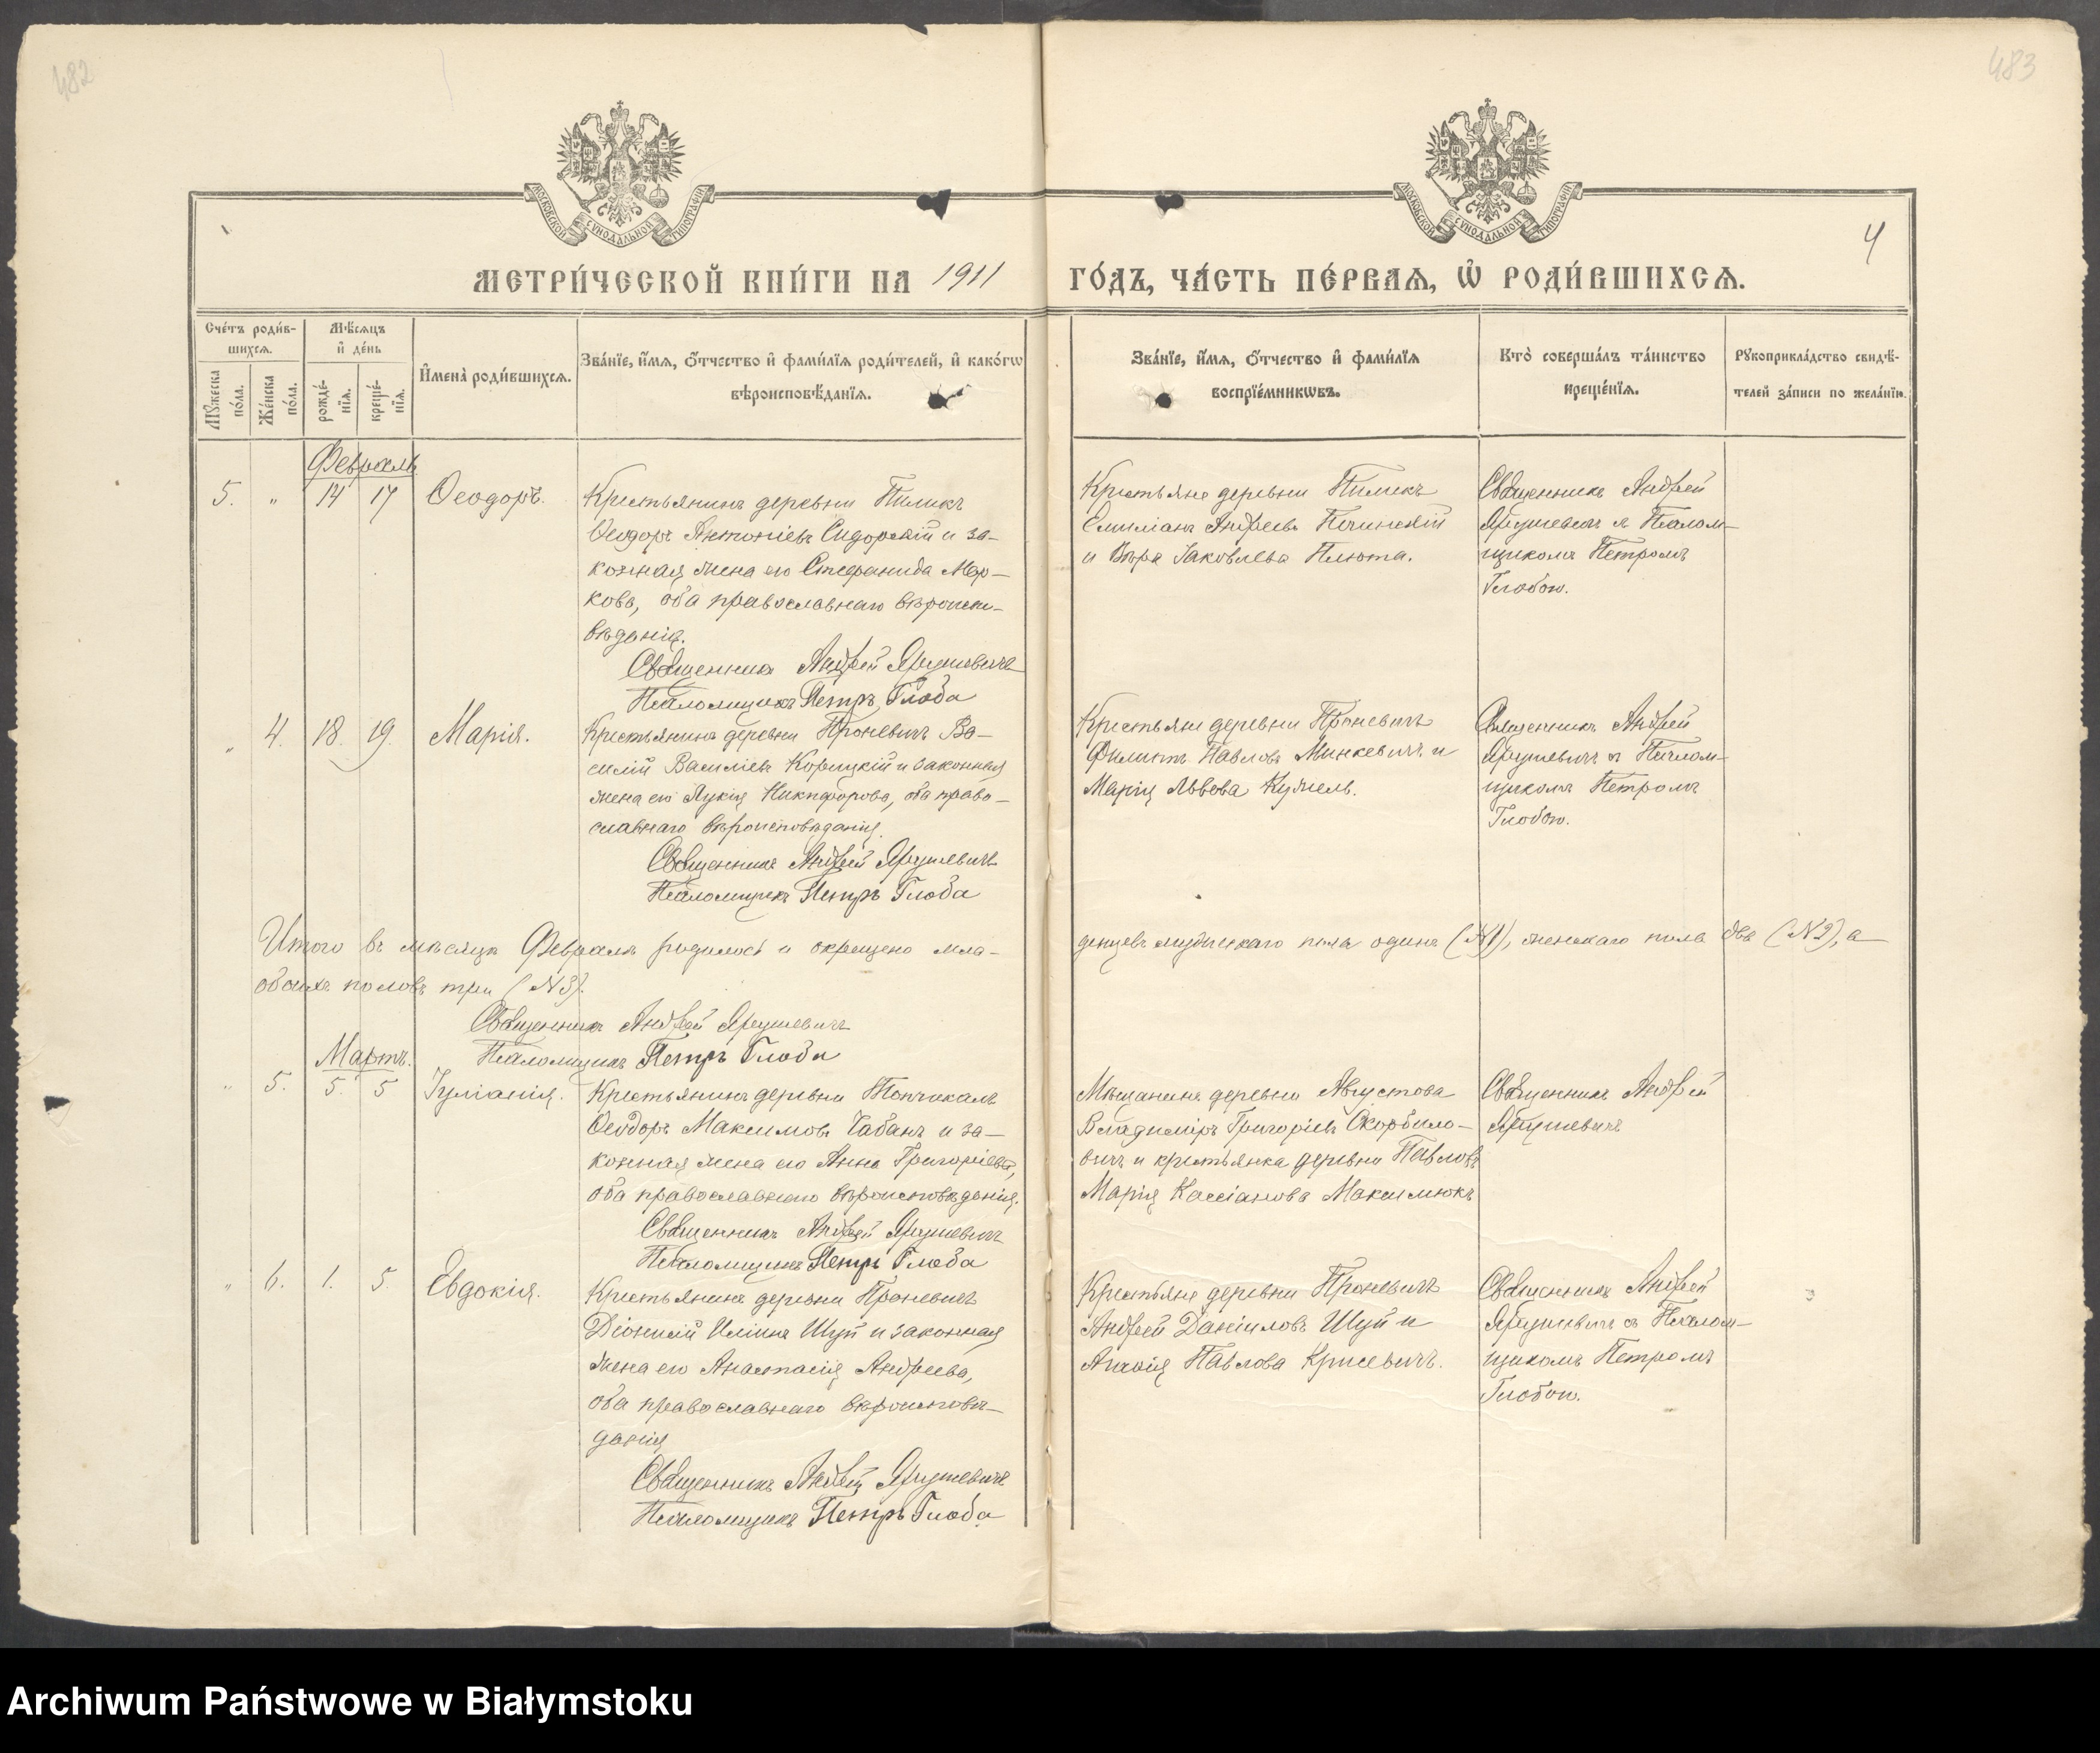 482
483
МОСКОВСКОЙ СУНОДАЛЬНОЙ ТИПОГРАФІИ
МОСКОВСКОЙ СУНОДАЛЬНОЙ ТИПОГРАФІИ
4
МЕТРИ́ЧЕСКОЙ КНИ́ГИ НА 1911
ГО́ДЪ, ЧА́СТЬ ПЕ́РВАѦ, Ѡ҆ РОДИ́ВШИХСѦ.
Сче́тъ роди́в-
шихсѧ.
Мѣ́сѧцъ
и҆ де́нь
Мꙋ́жеска
по́ла.
Же́нска
по́ла.
рожде́-
нїѧ.
креще́-
нїѧ.
И҆мена̀ роди́вшихсѧ.
Зва́нїе, и҆́мѧ, ѻ҆́тчество и҆ фами́лїѧ роди́телей, и҆ како́гѡ
вѣроисповѣ́данїѧ.
Зва́нїе, и҆́мѧ, ѻ҆́тчество и҆ фами́лїѧ
воспрїе́мникѡвъ.
Кто̀ соверша́лъ та́инство
креще́нїѧ.
Рꙋкоприкла́дство свидѣ́-
телей за́писи по жела́нїю.
Февраль
5. „ 14 17 Ѳеодоръ.
Крестьянинъ деревни Пилики
Ѳеодоръ Антоніевъ Сидорскій и за-
конная жена его Стефанида Мар-
кова, оба православнаго вѣроиспо-
вѣданія.
Священникъ Андрей Ярушевичъ
Псаломщикъ Петръ Глоба
Крестьяне деревни Пилики
Емиліанъ Андреевъ
и Вѣра Іаковлева Плюта.
Священникъ Андрей
Ярушевичъ съ Псалом-
щикомъ Петромъ
Глобою.
„ 4. 18. 19. Марія.
Крестьянинъ деревни Проневичъ Ва-
силій Василіевъ Корицкій и законная
жена его Лукія Никифорова, оба право-
славнаго вѣроисповѣданія.
Священникъ Андрей Ярушевичъ
Псаломщикъ Петръ Глоба
Крестьяне деревни Проневичъ
Филиппъ Павловъ Минкевичъ и
Марія Львова Кужель.
Священникъ Андрей
Ярушевичъ съ Псалом-
щикомъ Петромъ
Глобою.
Итого въ мѣсяцѣ Февралѣ родилось и окрещено мла-
денцевъ мужескаго пола одинъ (№1), женскаго пола два (№2), а
обоихъ половъ три (№3).
Священникъ Андрей Ярушевичъ
Псаломщикъ Петръ Глоба
Мартъ.
„ 5. 5. 5 Іуліанія.
Крестьянинъ деревни Топчикалы
Ѳеодоръ Максимовъ Чабанъ и за-
конная жена его Анна Григоріева,
оба православнаго вѣроисповѣданія.
Священникъ Андрей Ярушевичъ
Псаломщикъ Петръ Глоба
Мѣщанинъ деревни Августова
Владиміръ Григоріевъ Скорбило-
вичъ и крестьянка деревни Павловъ
Марія Кассіанова Максимюкъ
Священникъ Андрей
Ярушевичъ
„ 6. 1. 5. Евдокія.
Крестьянинъ деревни Проневичъ
Діонисій Иліинъ Шуй и законная
жена его Анастасія Андреева,
оба православнаго вѣроисповѣ-
данія
Священникъ Андрей Ярушевичъ
Псаломщикъ Петръ Глоба
Крестьяне деревни Проневичъ
Андрей Даніиловъ Шуй и
Павлова Крисевичъ.
Священникъ Андрей
Ярушевичъ съ Псалом-
щикомъ Петромъ
Глобою.
Archiwum Państwowe w Białymstoku